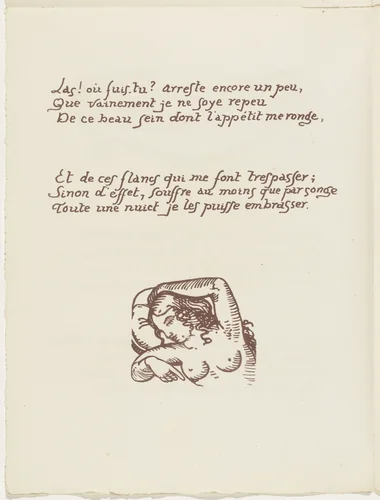 Las! où fuis-tu? Arreste encore un peu,
Que vainement je ne soye repeu
De ce beau sein dont l'appétit me ronge,
Et de ces flancs qui me font trespasser;
Sinon d'effet, souffre au moins que par songe
Toute une nuict je les puisse embrasser.